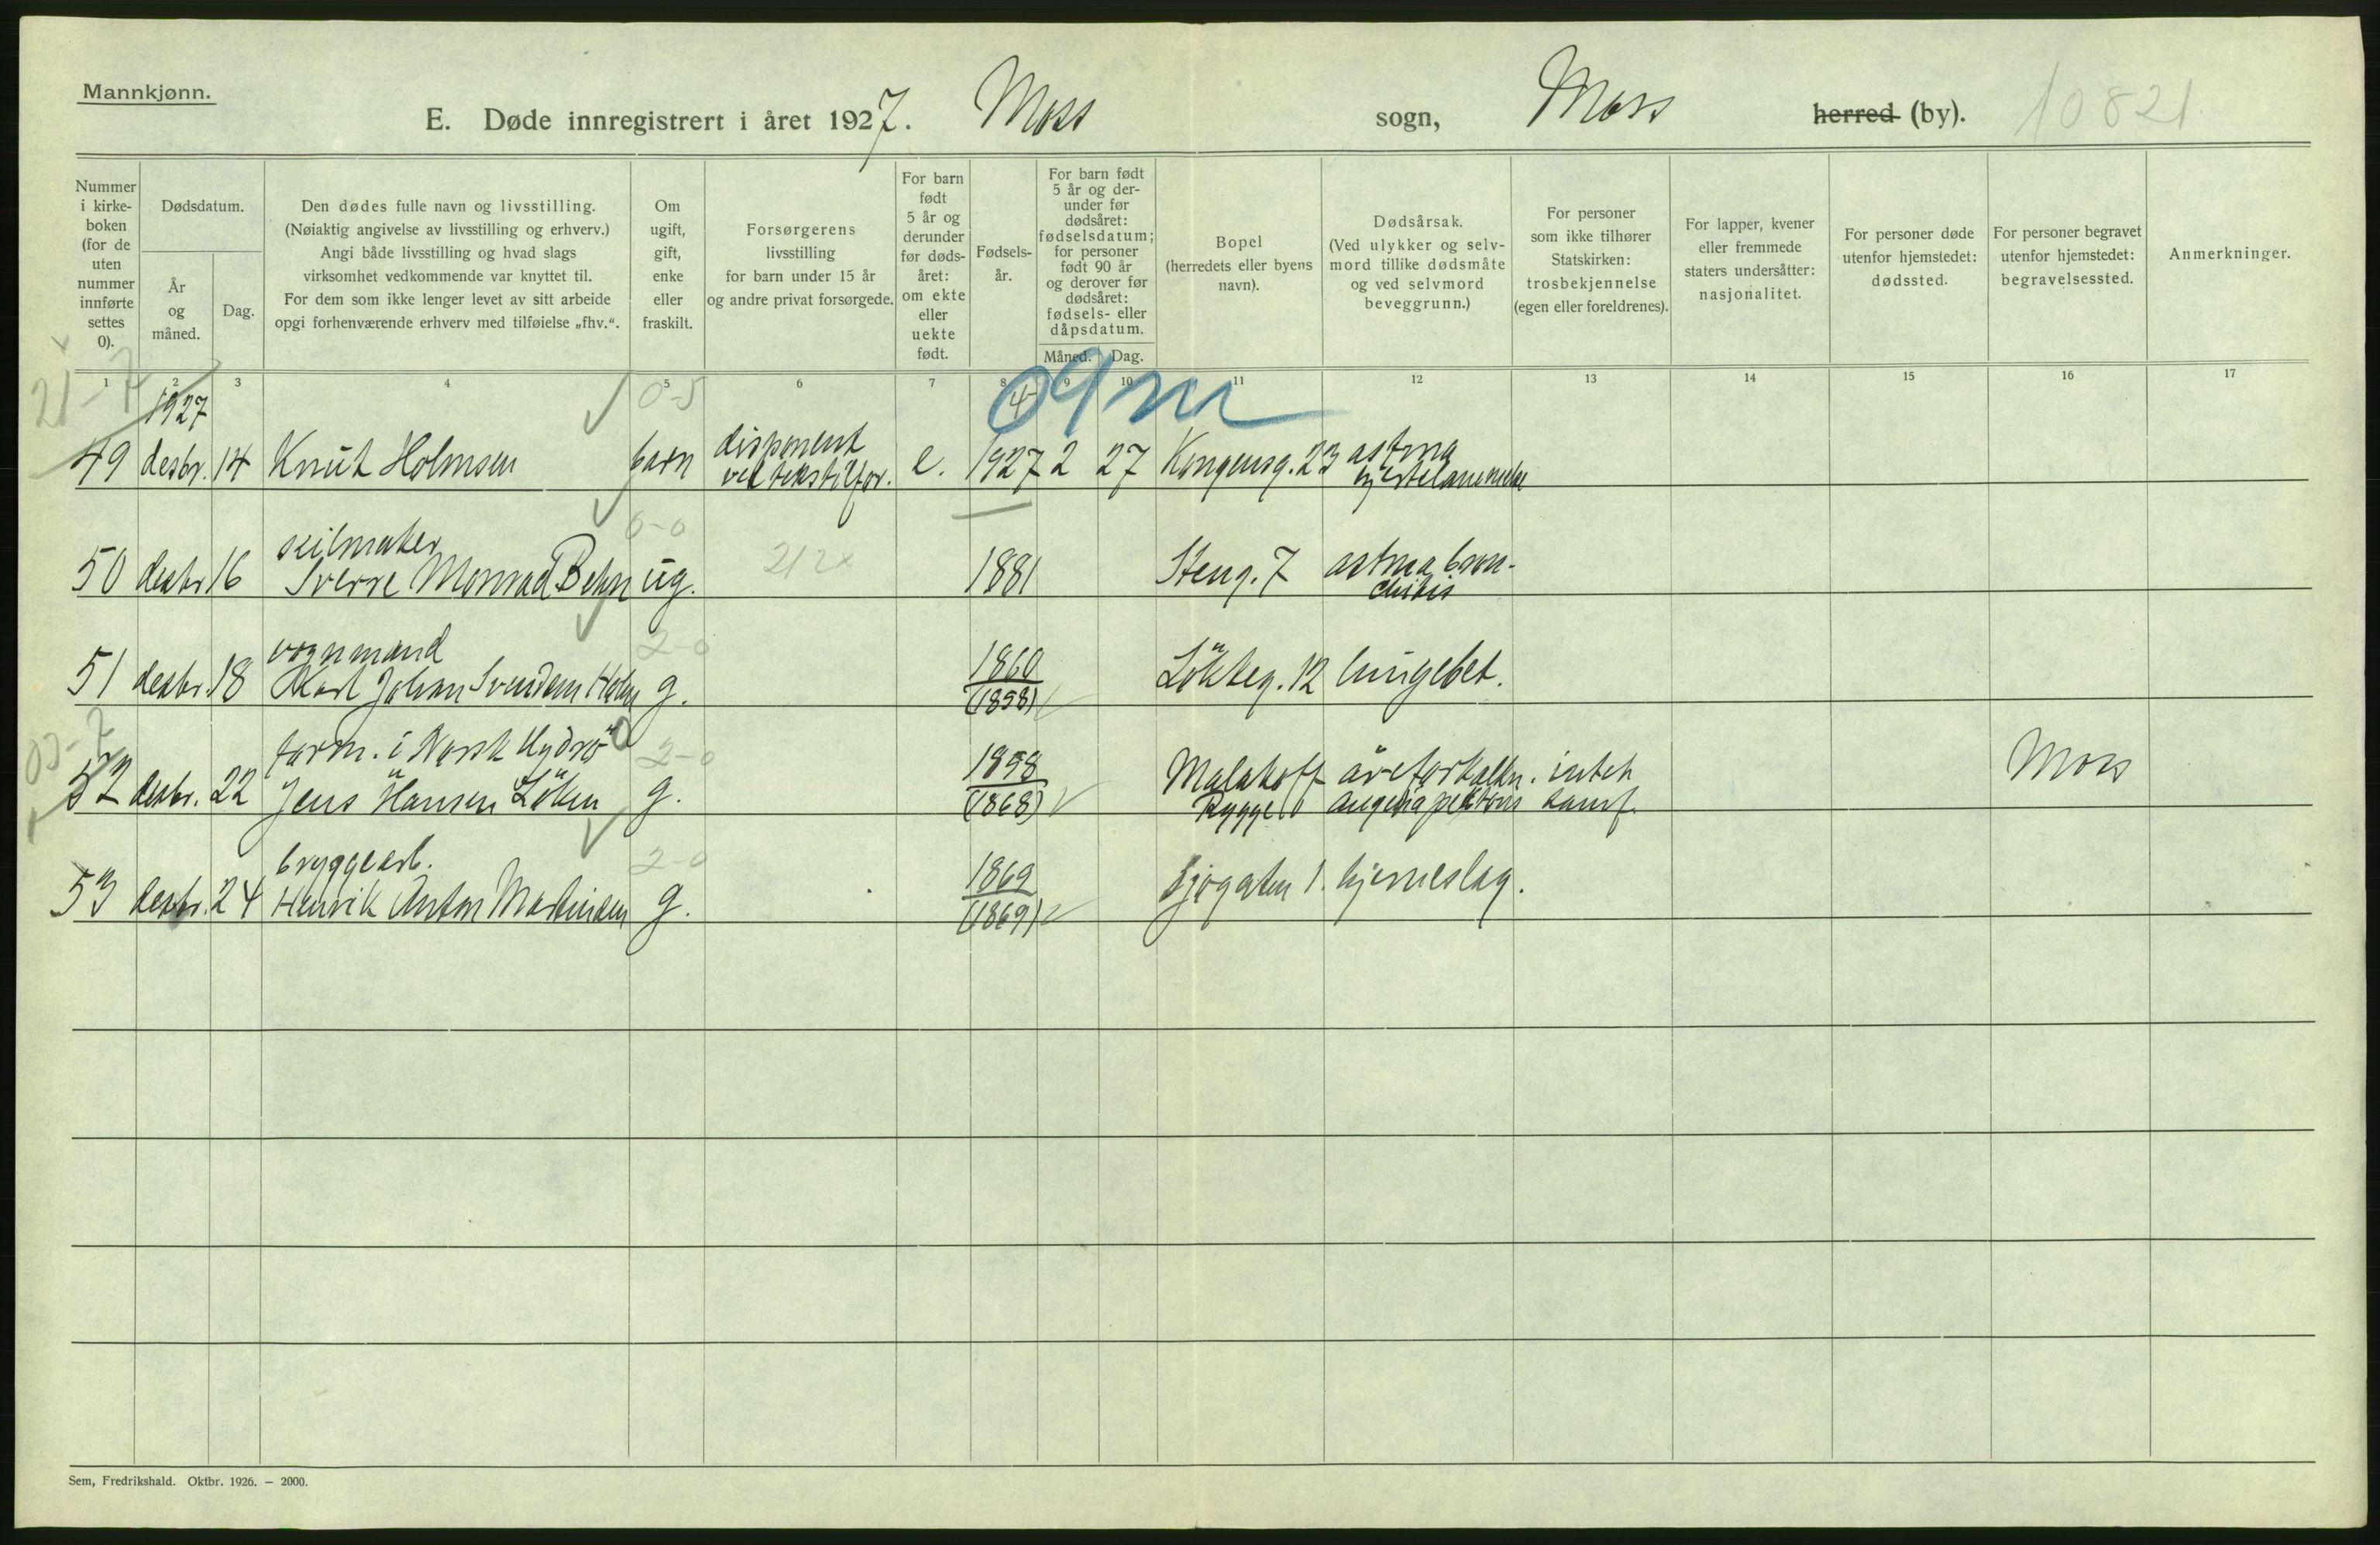 Mannkjønn.
E. Døde innregistrert i året 1927. Moss sogn, Moss herred (by). 10821
Nummer i kirke- boken (for de uten nummer innførte settes 0).
Dødsdatum.
År og måned.
Dag.
Den dødes fulle navn og livsstilling.
(Nøiaktig angivelse av livsstilling og erhverv.)
Angi både livsstilling og hvad slags
virksomhet vedkommende var knyttet til.
For dem som ikke lenger levet av sitt arbeide
opgi forhenværende erhverv med tilføielse „fhv.“.
Om ugift, gift, enke eller fraskilt.
Forsørgerens
livsstilling
for barn under 15 år
og andre privat forsørgede.
For barn født 5 år og derunder før døds- året: om ekte eller uekte født.
Fødsels- år.
For barn født 5 år og der- under før dødsåret: fødselsdatum; for personer født 90 år og derover før dødsåret: fødsels- eller dåpsdatum.
Måned. Dag.
Bopel
(herredets eller byens
navn).
Dødsårsak.
(Ved ulykker og selv-
mord tillike dødsmåte
og ved selvmord
beveggrunn.)
For personer
som ikke tilhører
Statskirken:
trosbekjennelse
(egen eller foreldrenes).
For lapper, kvener
eller fremmede
staters undersåtter:
nasjonalitet.
For personer døde
utenfor hjemstedet:
dødssted.
For personer begravet
utenfor hjemstedet:
begravelsessted.
Anmerkninger.
1 2 3 4 5 6 7 8 9 10 11 12 13 14 15 16 17
21-7 1927 0-5 4 09m
disponent astma
49 desbr. 14 Knut Holmsen barn ved tekstilfor. e. 1927 2 27 Kongensg. 23 hjertelammelse
0-0
seilmaker 212x
50 desbr 16 Sverre Monrad Behn ug. 1881 Steng. 7 astma bron-
chitis
2-0
vognmand 1860
51 desbr. 18 Karl Johan Svendsen Holm g. (1858) Løkkeg. 12 lungebet.
03-7 2-0
form. i Norsk Hydro 1898 Malakoff åreforkalkn. Moss
52 desbr. 22 Jens Hansen Løken g. (1868) Rygge angina pektoris
2-0
bryggearb. 1869
53 desbr. 24 Henrik Anton Martinsen g. (1869) Sjøgaten 1. hjerneslag.
Sem, Fredrikshald. Oktbr. 1926. — 2000.